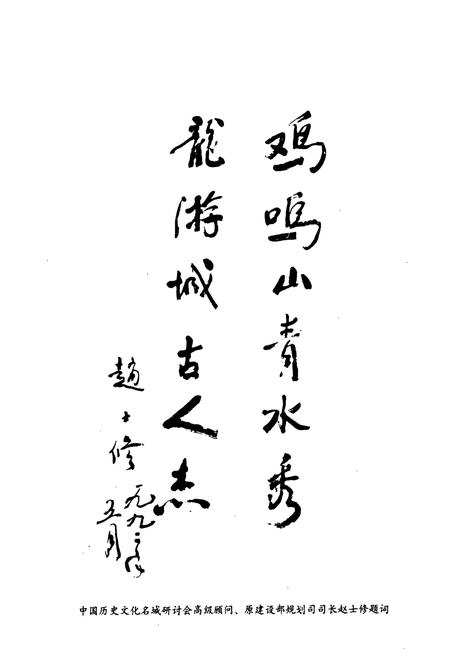 鸡鸣山青水秀
龍游城古人杰
趙士修
一九九二年
五月
中国历史文化名城研讨会高级顾问、原建设部规划司司长赵士修题词